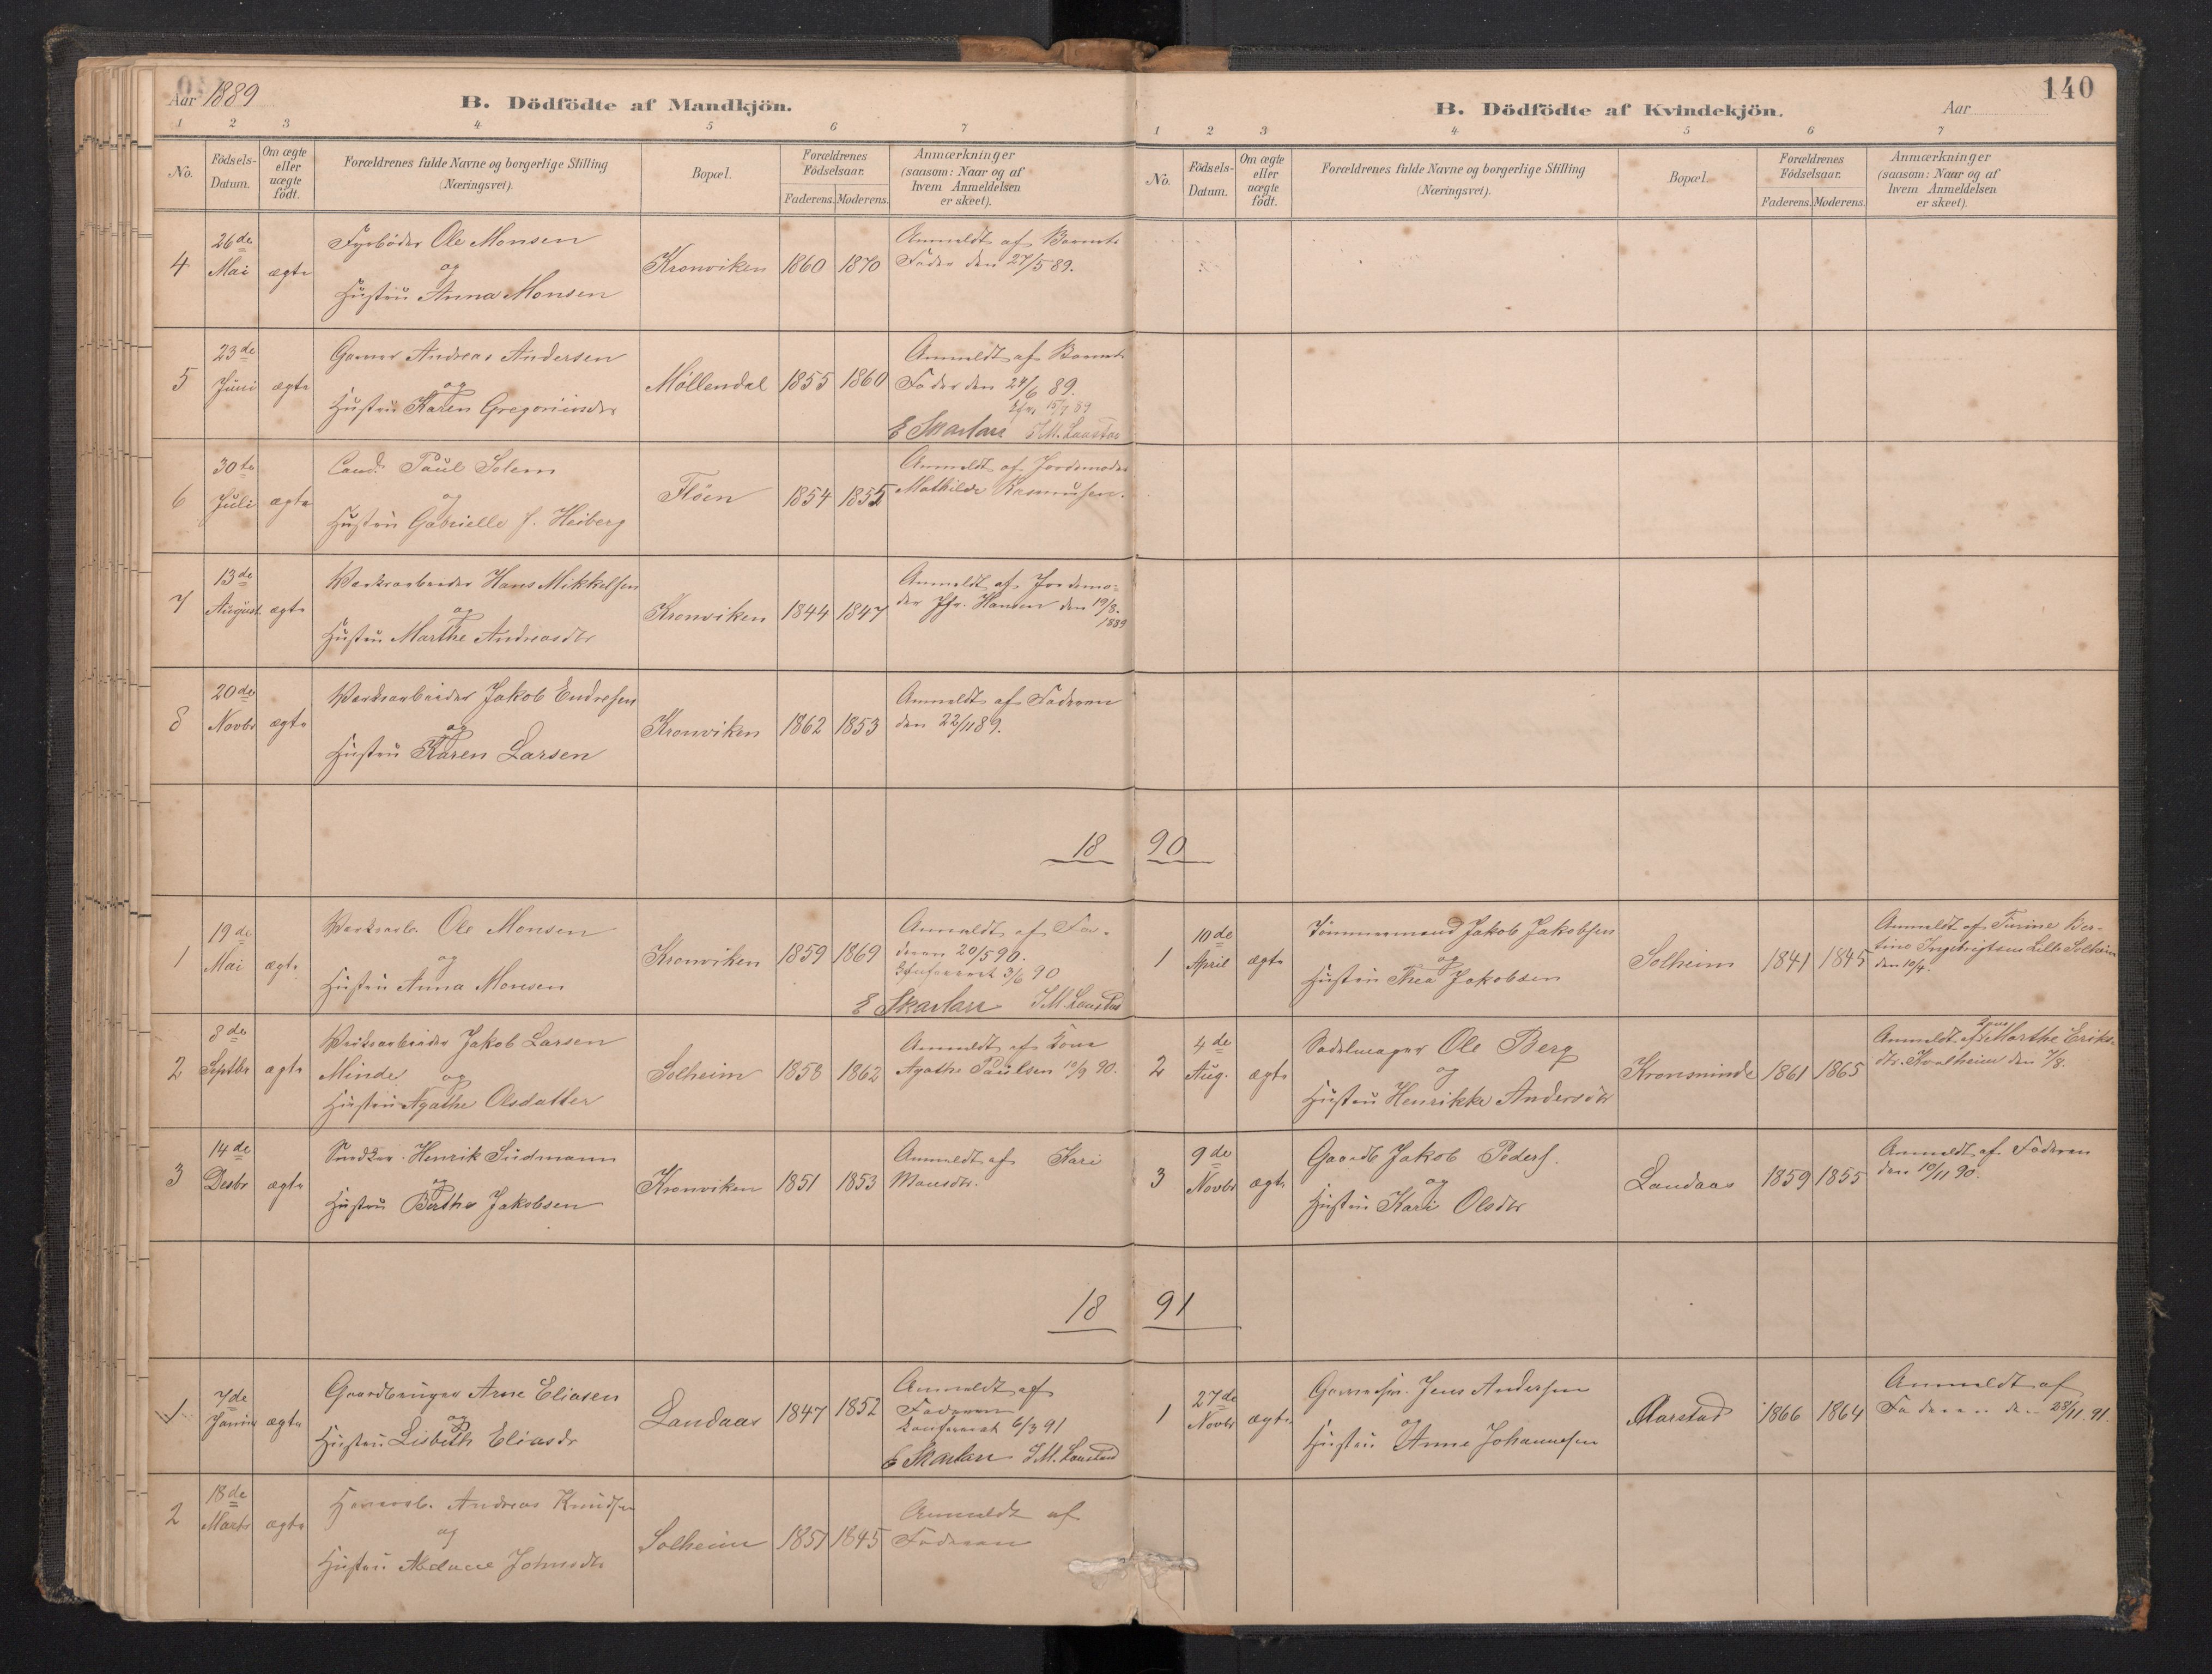 Aar 1889
B. Dödfödte af Mandkjön.
1 2 3 4 5 6 7
No.
Födsels-
Datum.
Om ægte
eller
uægte
födt.
Forældrenes fulde Navne og borgerlige Stilling
(Næringsvei).
Bopæl.
Forældrenes
Födselsaar.
Faderens. Moderens.
Anmærkninger
(saasom: Naar og af
hvem Anmeldelsen
er skeet).
4
26de
Mai
ægte
Fyrböder Ole Monsen
og
Hustru Anna Monsen
Kronviken
1860
1870
Anmeldt af Barnets
Fader den 27/5 89.
5
23de
Juni
ægte
Garver Andreas Andersen
og
Hustru Karen Gregoriusdr
Möllendal
1855
1860
Anmeldt af Barnets
Fader den 24/6 89.
E Skarlan
6
30te
Juli
ægte
Cand. Paul Solem
og
Hustru Gabrielle f. Heiberg
Flöen
1854
1855
Anmeldt af Jordemoder
Mathilde Rasmussen.
7
13de
August
ægte
Værksarbeider Hans Mikkelsen
og
Hustru Marthe Andreasdtr
Kronviken
1844
1847
Anmeldt af Jordemo-
der Jfr. Hansen den 19/8.
1889
8
20de
Novbr
ægte
Værksarbeider Jakob Endresen
og
Hustru Karen Larsen
Kronviken
1862
1853
Anmeldt af Faderen
den 22/11 89.
18 90
1
19de
Mai
ægte
Værksarb. Ole Monsen
og
Hustru Anna Monsen
Kronviken
1859
1869
Anmeldt af Fa-
deren 20/5 90.
Konfereret 3/6 90
E Skarlan
2
8de
Septbr
ægte
Værksarbeider Jakob Larsen
Minde og
Hustru Agathe Olsdatter
Solheim
1858
1862
Anmeldt af Kone
Agathe Paulsen 10/9 90.
3
14de
Desbr
ægte
Henrik Südmann
og
Hustru Berthe Jakobsen
Kronviken
1851
1853
Anmeldt af Kari
Monsdtr.
18 91
1
7de
ægte
Gaardbruger Arne Eliasen
og
Hustru Lisbeth Eliasdr
Landaas
1847
1852
Anmeldt af
Faderen
Konfereret 6/3 91
E Skarlan
2
18de
Marts
ægte
Andreas Knudsen
og
Hustru Johnsdtr
Solheim
1851
1845
Anmeldt af
Faderen
140
B. Dödfödte af Kvindekjön.
Aar
1 2 3 4 5 6 7
No.
Födsels-
Datum.
Om ægte
eller
uægte
födt.
Forældrenes fulde Navne og borgerlige Stilling
(Næringsvei).
Bopæl.
Forældrenes
Födselsaar.
Faderens. Moderens.
Anmærkninger
(saasom: Naar og af
hvem Anmeldelsen
er skeet).
1
10de
April
ægte
Tömmermand Jakob Jakobsen
og
Hustru Thea Jakobsen
Solheim
1841
1845
Anmeldt af Turine Ber-
tine Ingebrigtsen Lille Solheim
den 10/4.
2
4de
Aug.
ægte
Sadelmager Ole Berg
og
Hustru Henrikke Andersdtr
Kronsminde
1861
1865
Anmeldt af Marthe Eriks-
dtr. Kvalheim den 7/8.
3
9de
Novbr
ægte
Gaardb Jakob Peders.
og
Hustru Kari Olsdtr
Landaas
1859
1855
Anmeldt af Faderen
den 10/11 90.
1
27de
Novbr
ægte
Jens Andersen
og
Hustru Anne Johannesen
Aarstad
1866
1864
Anmeldt af
Faderen den 28/11 91.